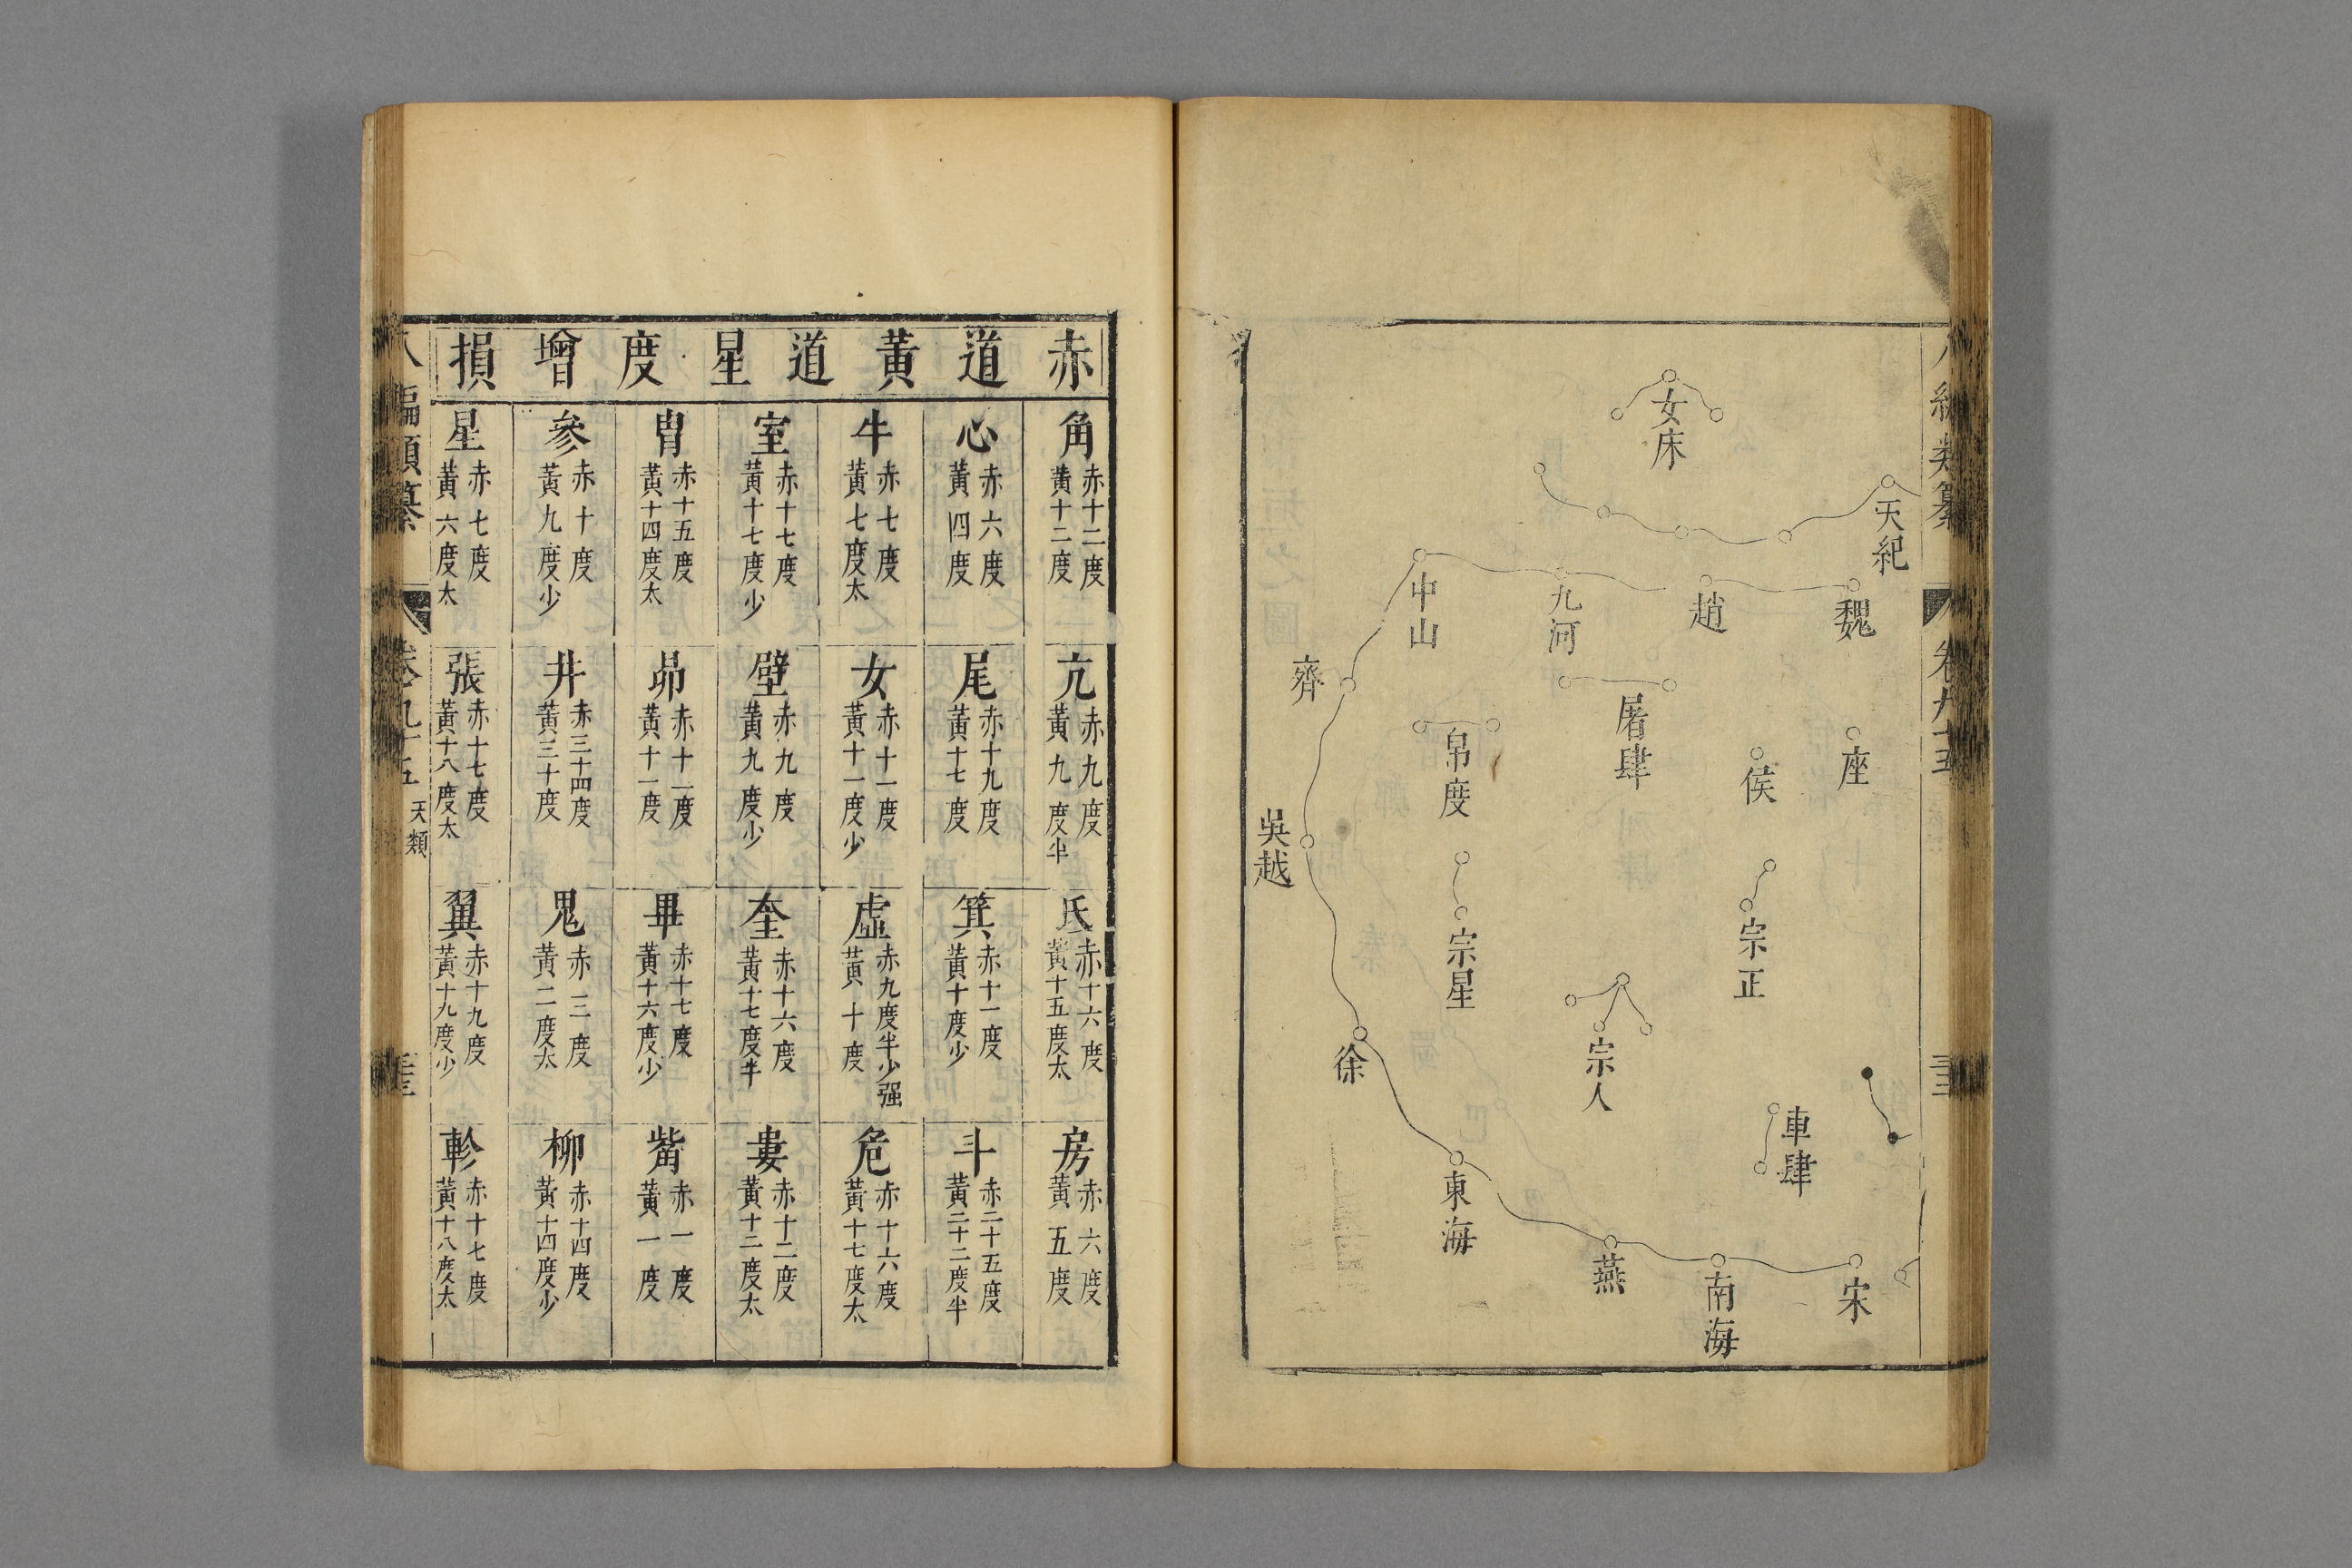 女床
天紀
魏
趙
九河
中山
齊
吳越
徐
東海
燕
南海
宋
屠肆
帛度
座
侯
宗正
宗星
宗人
車肆
編類纂
卷九十五
赤道黃道星度增損
角 赤十二度 黃十二度
亢 赤九度 黃九度半
氐 赤十六度 黃十五度太
房 赤六度 黃五度
心 赤六度 黃四度
尾 赤十九度 黃十七度
箕 赤十一度 黃十度少
斗 赤二十五度 黃二十二度半
牛 赤七度 黃七度太
女 赤十一度 黃十一度少
虛 赤九度半少强 黃十度
危 赤十六度 黃十七度太
室 赤十七度 黃十七度少
壁 赤九度 黃九度少
奎 赤十六度 黃十七度半
婁 赤十二度 黃十二度太
胃 赤十五度 黃十四度太
昴 赤十一度 黃十一度
畢 赤十七度 黃十六度少
觜 赤一度 黃一度
參 赤十度 黃九度少
井 赤三十四度 黃三十度
鬼 赤三度 黃二度太
柳 赤十四度 黃十四度少
星 赤七度 黃六度太
張 赤十七度 黃十八度太
翼 赤十九度 黃十九度少
軫 赤十七度 黃十八度太
八編類纂
卷九十五
天類